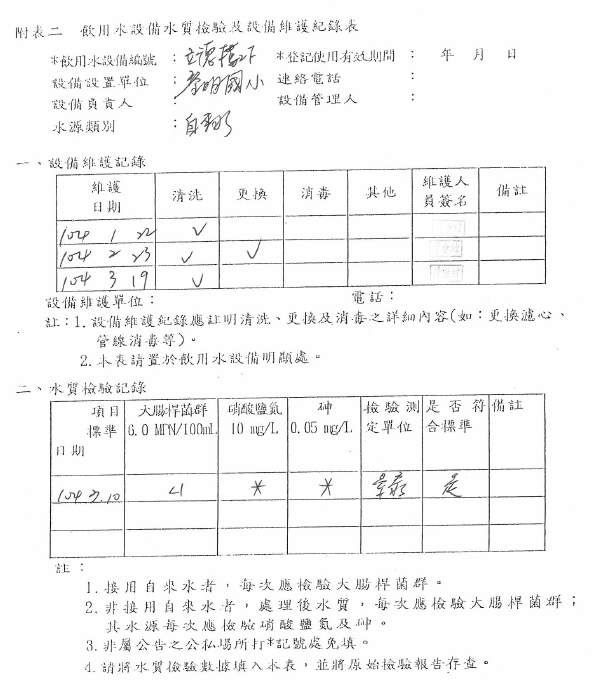 附表二 飲用水設備水質檢驗及設備維護紀錄表
*飲用水設備編號：立德樓下 *登記使用有效期間： 年 月 日
設備設置單位：崇明國小 連絡電話：
設備負責人： 設備管理人：
水源類別：自來水
一、設備維護記錄
維護日期 清洗 更換 消毒 其他 維護人員簽名 備註
104 1 22 ✓
104 2 23 ✓ ✓
104 3 19 ✓
設備維護單位： 電話：
註：1.設備維護紀錄應註明清洗、更換及消毒之詳細內容(如：更換濾心、
管線消毒等)。
2.本表請置於飲用水設備明顯處。
二、水質檢驗記錄
項目 大腸桿菌群 硝酸鹽氮 砷 檢驗測 是否符 備註
標準 6.0 MPN/100mL 10 mg/L 0.05 mg/L 定單位 合標準
日期
104 2.10 <1 * * 是
註：
1.接用自來水者，每次應檢驗大腸桿菌群。
2.非接用自來水者，處理後水質，每次應檢驗大腸桿菌群；
其水源每次應檢驗硝酸鹽氮及砷。
3.非屬公告之公私場所打*記號處免填。
4.請將水質檢驗數據填入本表，並將原始檢驗報告存查。